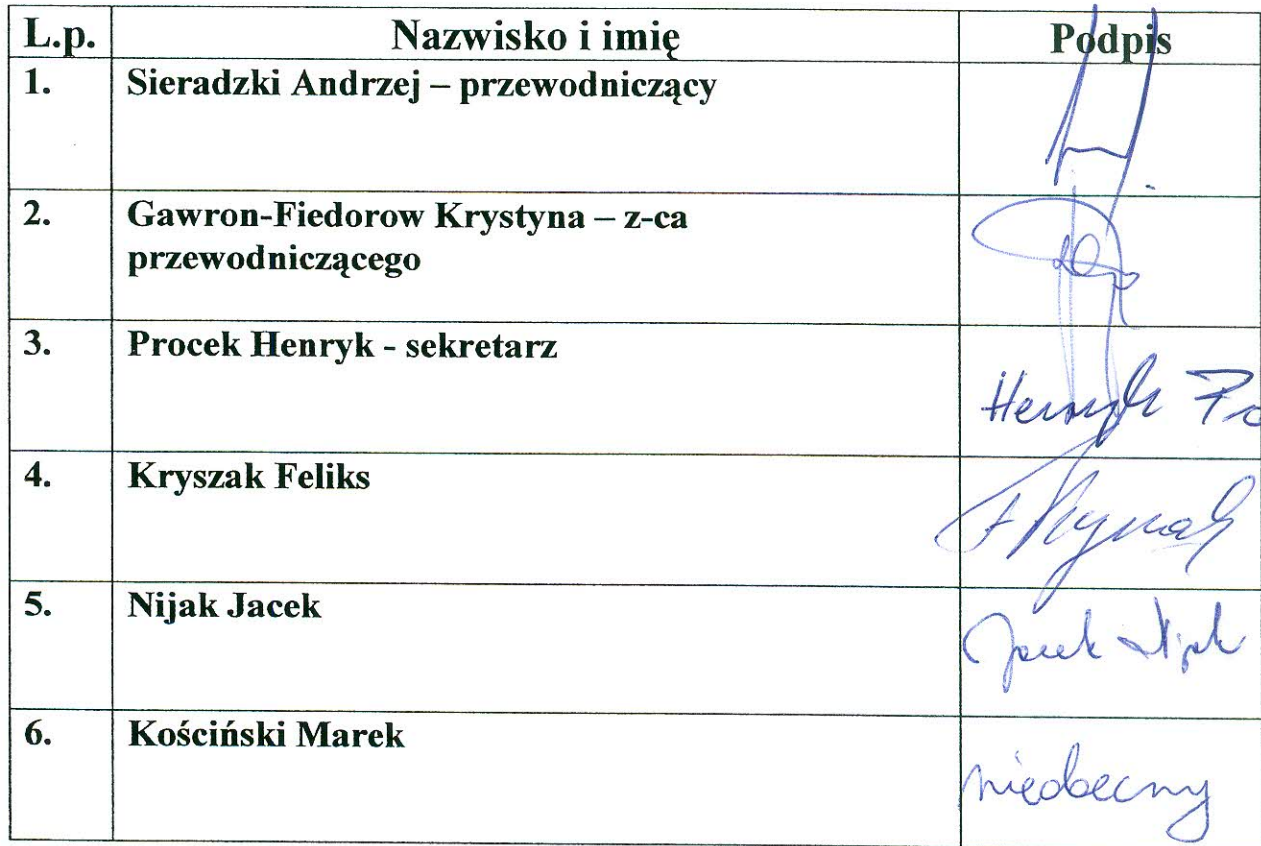 L.p. Nazwisko i imię Podpis
1. Sieradzki Andrzej – przewodniczący
2. Gawron-Fiedorow Krystyna – z-ca
przewodniczącego
3. Procek Henryk - sekretarz
Henryk
4. Kryszak Feliks
5. Nijak Jacek
Jacek Nijak
6. Kościński Marek
nieobecny